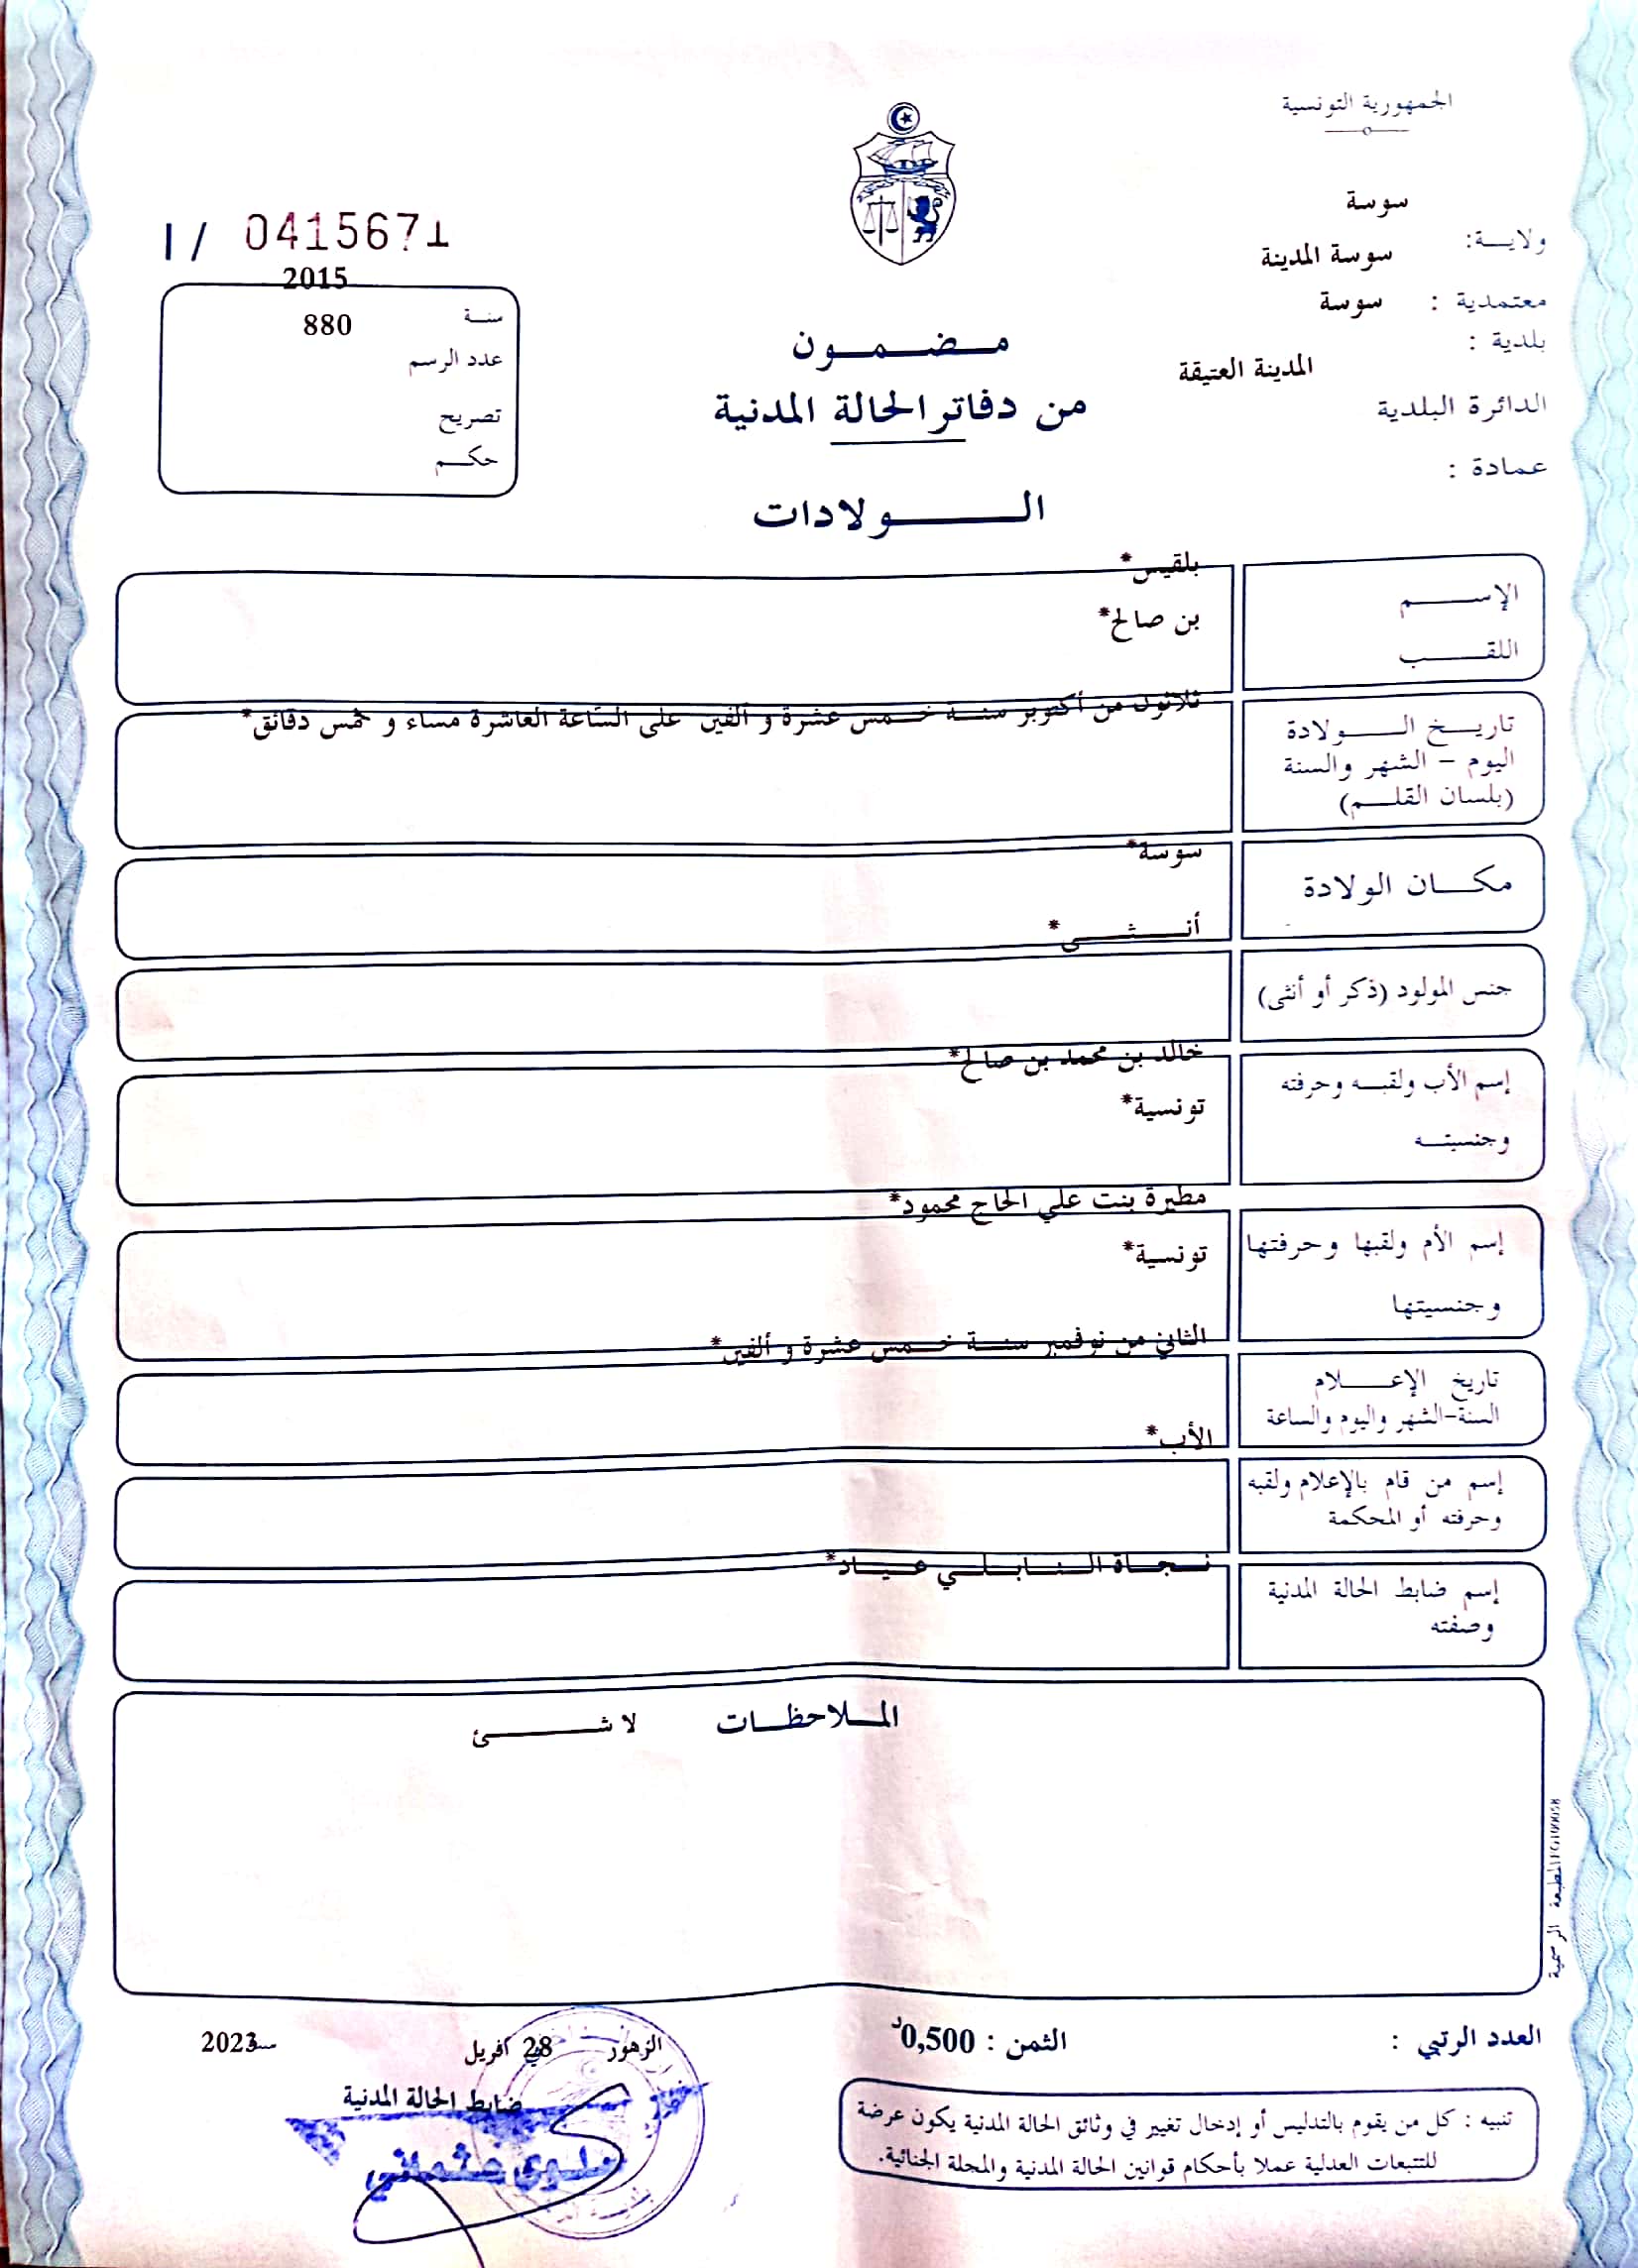 الجمهورية التونسية
سوسة
ولاية:
سوسة المدينة
معتمدية :
سوسة
بلدية :
المدينة العتيقة
الدائرة البلدية
عمادة :
I / 0415671
2015
سنة
880
عدد الرسم
تصريح
حكم
مضمون
من دفاتر الحالة المدنية
الولادات
بلقيس*
الإسم
بن صالح*
اللقب
ثلاثون من أكتوبر سنة خمس عشرة و ألفين على الساعة العاشرة مساء و خمس دقائق*
تاريخ الولادة
اليوم – الشهر والسنة
(بلسان القلم)
سوسة*
مكان الولادة
أنثى*
جنس المولود (ذكر أو أنثى)
خالد بن محمد بن صالح*
إسم الأب ولقبه وحرفته
تونسية*
وجنسيته
مطيرة بنت علي الحاج محمود*
إسم الأم ولقبها وحرفتها
تونسية*
وجنسيتها
الثاني من نوفمبر سنة خمس عشرة و ألفين*
تاريخ الإعلام
السنة-الشهر واليوم والساعة
الأب*
إسم من قام بالإعلام ولقبه
وحرفته أو المحكمة
نجاة النابلي عياد*
إسم ضابط الحالة المدنية
وصفته
الملاحظات لا شئ
المطبعة الرسمية
العدد الرتبي :
الثمن : 0,500د
الزهور في 28 أفريل 2023
ضابط الحالة المدنية
تنبيه : كل من يقوم بالتدليس أو إدخال تغيير في وثائق الحالة المدنية يكون عرضة
للتتبعات العدلية عملا بأحكام قوانين الحالة المدنية والمجلة الجنائية.